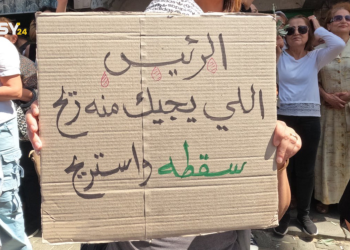 24
الرئيس
اللي يجيك منه ريح
سقطه واستريح